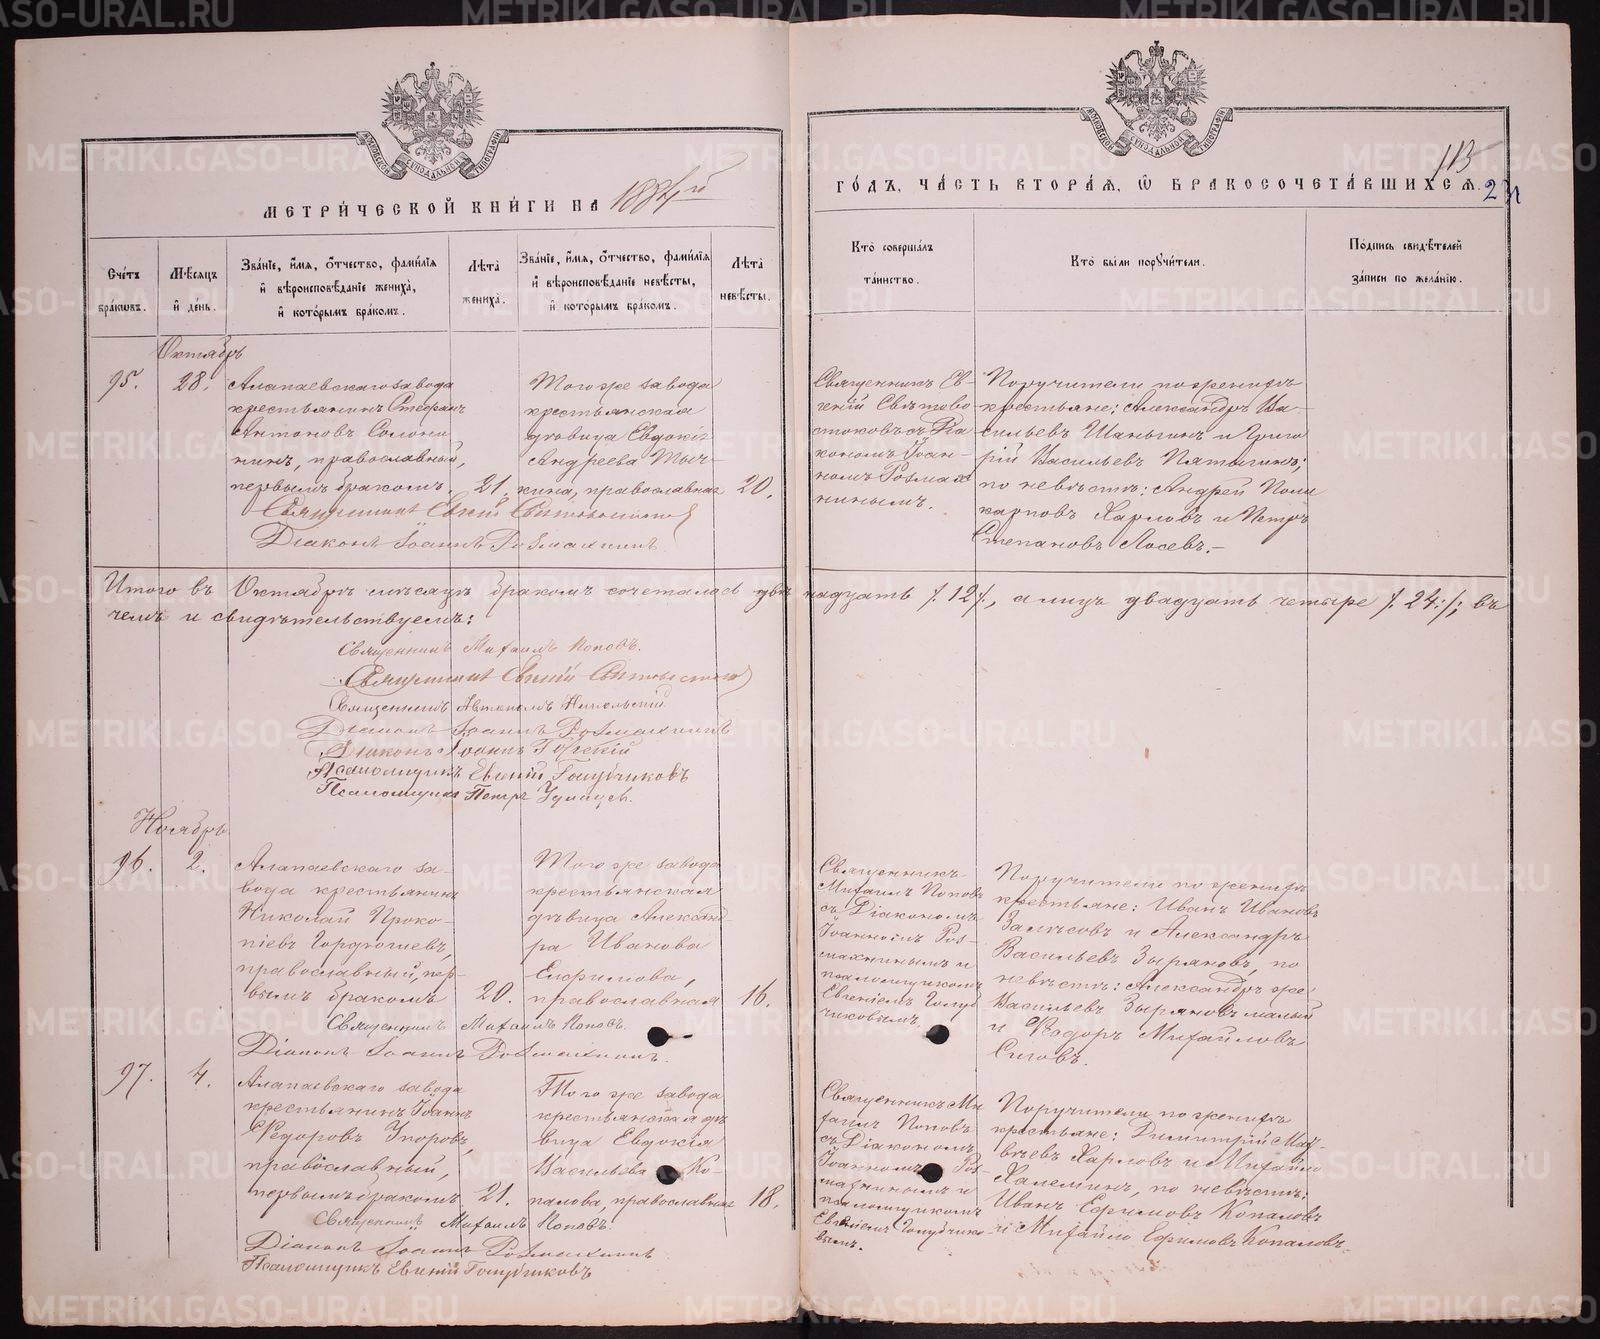 МЕТРИ́ЧЕСКОЙ КНИ́ГИ НА 1884й
ГО́ДЪ, ЧА́СТЬ ВТОРА́Я, Ѡ БРАКОСОЧЕТА́ВШИХСЯ.
113
Сче́тъ бра́кѡвъ.
Мѣ́сяцъ и҆ де́нь.
Зва́нїе, и҆́мя, ѻ҆́тчество, фами́лїя и҆ вѣроисповѣ́данїе жениха̀, и҆ кото́рымъ бра́комъ.
Лѣ́та жениха̀.
Зва́нїе, и҆́мя, ѻ҆́тчество, фами́лїя и҆ вѣроисповѣ́данїе невѣ́сты, и҆ кото́рымъ бра́комъ.
Лѣ́та невѣ́сты.
Кто̀ соверша́лъ та́инство.
Кто̀ бы́ли порꙋчи́тели.
По́дпись свидѣ́телей за́писи по жела́нїю.
Октябрь
95.
28.
Алапаевскаго завода
крестьянинъ Стефанъ
Антоновъ Солони
нинъ, православный,
первымъ бракомъ.
21.
Того же завода
крестьянская
дѣвица Евдокія
Андреева Тыч
кина, православная
20.
Священникъ Ев-
геній Свѣтово
стоковъ съ Діа
кономъ Іоан-
номъ Розмах
нинымъ.
Поручители по женихѣ
крестьяне: Александръ Ва-
сильевъ Шаньгинъ и Григо
рій Васильевъ Пятыгинъ;
по невѣстѣ: Андрей Поли
карповъ Харловъ и Петръ
Степановъ Лосевъ.-
Священникъ Евгеній Свѣтовостоковъ
Діаконъ Іоаннъ Розмахнинъ.
Итого въ Октябрѣ мѣсяцѣ бракомъ сочеталось двѣнадцать /.12/., а лицъ двадцать четыре /.24./; въ
чемъ и свидѣтельствуемъ:
Священникъ Михаилъ Поповъ.
Священникъ Евгеній Свѣтовостоковъ
Священникъ Автономъ Никольскій
Діаконъ Іоаннъ Розмахнинъ
Діаконъ Іоаннъ Горскій
Псаломщикъ Евгеній Голубчиковъ
Псаломщикъ Петръ
Ноябрь
96.
2.
Алапаевскаго за-
вода крестьянинъ
Николай Проко-
піевъ Гордѣевъ,
православный, пер-
вымъ бракомъ
20.
Того же завода
крестьянская
дѣвица Александ-
ра Иванова
Ефимова,
православная
16.
Священникъ
Михаилъ Поповъ
съ Діакономъ
Іоанномъ Роз-
махнинымъ и
псаломщикомъ
Евгеніемъ Голуб
чиковымъ.
Поручители по женихѣ
крестьяне: Иванъ Ивановъ
Залѣсовъ и Александръ
Васильевъ Зыряновъ, по
невѣстѣ: Александръ же
Васильевъ Зыряновъ малый
и Ѳедоръ Михайловъ
Сиговъ.
Священникъ Михаилъ Поповъ.
Діаконъ Іоаннъ Розмахнинъ.
97.
4.
Алапаевскаго завода
крестьянинъ Іоаннъ
Ѳедоровъ Упоровъ,
православный,
первымъ бракомъ
21.
Того же завода
крестьянская дѣ
вица Евдокія
Васильева Ко-
палова, православная
18.
Священникъ Ми
хаилъ Поповъ
съ Діакономъ
Іоанномъ Роз-
махнинымъ и
псаломщикомъ
Евгеніемъ Голубчико-
вымъ.
Поручители по женихѣ
крестьяне: Димитрій Мат-
вѣевъ Харловъ и Михайло
Халеминъ, по невѣстѣ:
Иванъ Ефимовъ Копаловъ
и Михайло Ефимовъ Копаловъ.
Священникъ Михаилъ Поповъ.
Діаконъ Іоаннъ Розмахнинъ
Псаломщикъ Евгеній Голубчиковъ
METRIKI.GASO-URAL.RU